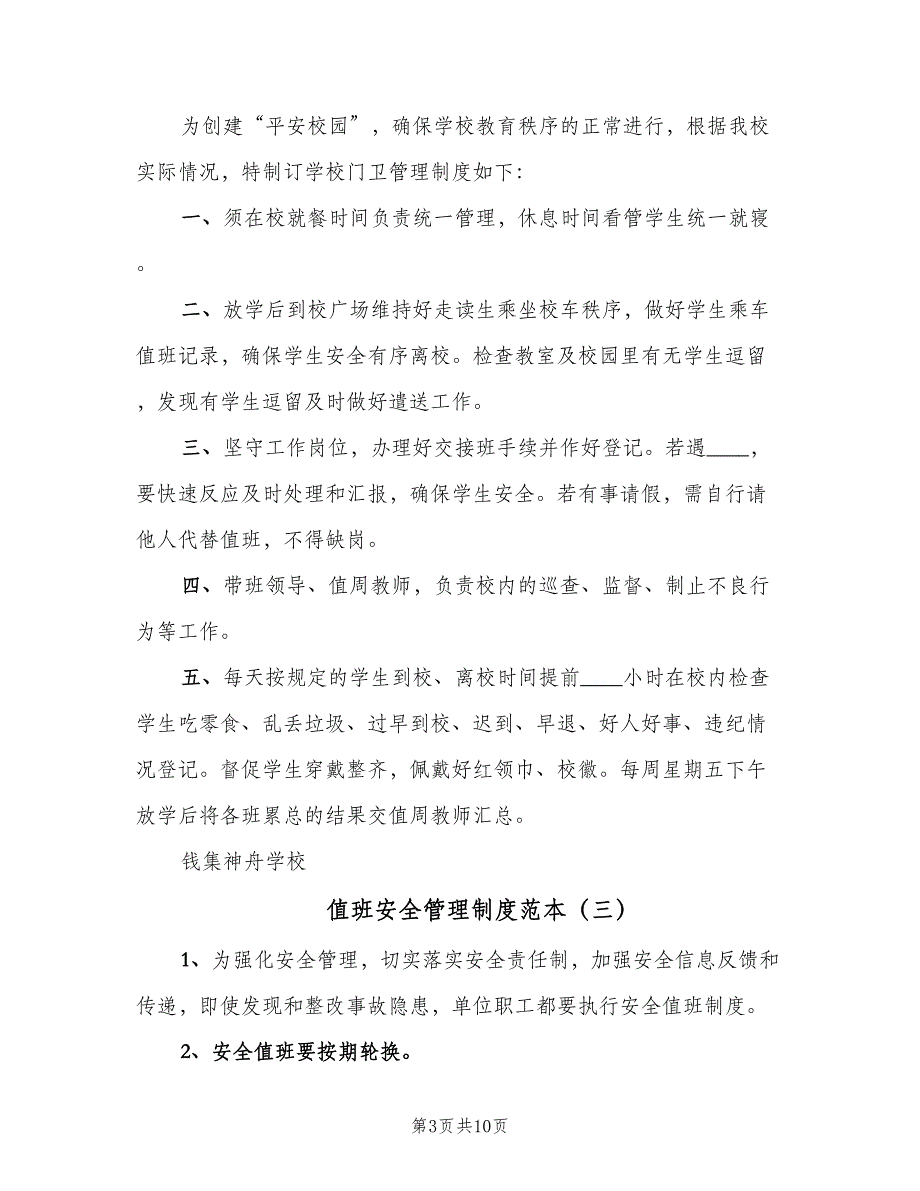 为创建“平安校园”，确保学校教育秩序的正常进行，根据我校
实际情况，特制订学校门卫管理制度如下：
一、须在校就餐时间负责统一管理，休息时间看管学生统一就寝
。
二、放学后到校广场维持好走读生乘坐校车秩序，做好学生乘车
值班记录，确保学生安全有序离校。检查教室及校园里有无学生逗留
，发现有学生逗留及时做好遣送工作。
三、坚守工作岗位，办理好交接班手续并作好登记。若遇____，
要快速反应及时处理和汇报，确保学生安全。若有事请假，需自行请
他人代替值班，不得缺岗。
四、带班领导、值周教师，负责校内的巡查、监督、制止不良行
为等工作。
五、每天按规定的学生到校、离校时间提前____小时在校内检查
学生吃零食、乱丢垃圾、过早到校、迟到、早退、好人好事、违纪情
况登记。督促学生穿戴整齐，佩戴好红领巾、校徽。每周星期五下午
放学后将各班累总的结果交值周教师汇总。
钱集神舟学校
值班安全管理制度范本（三）
1、为强化安全管理，切实落实安全责任制，加强安全信息反馈和
传递，即使发现和整改事故隐患，单位职工都要执行安全值班制度。
2、安全值班要按期轮换。
第3页共10页